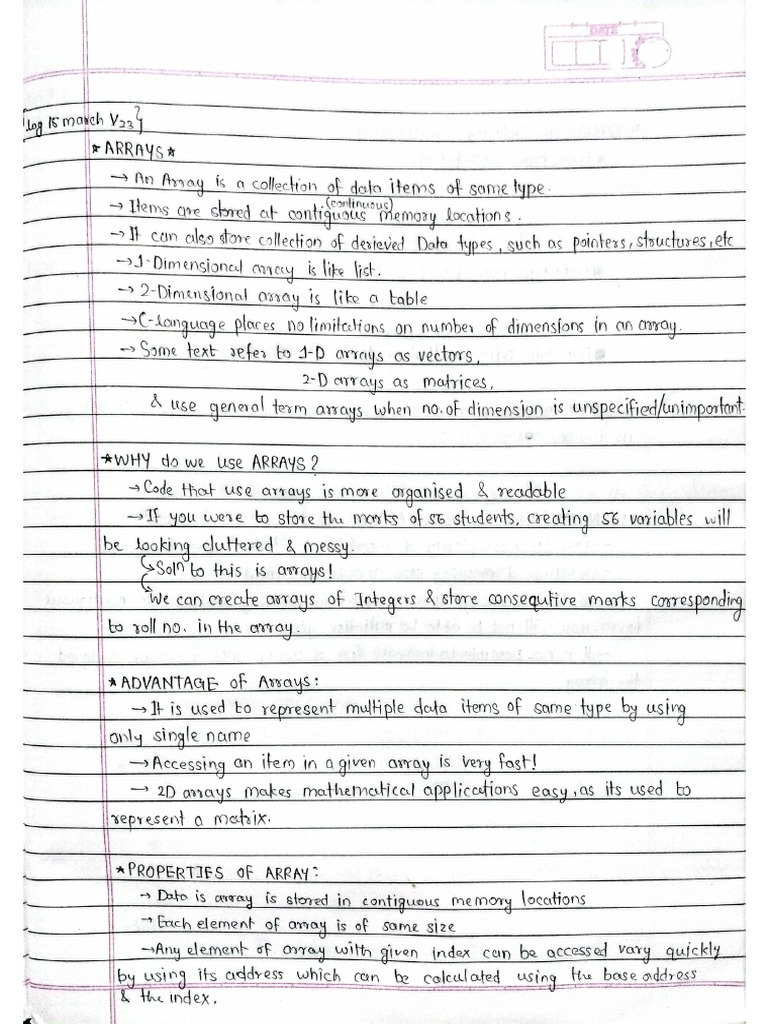 DATE
{log 15 march V23}
*ARRAYS*
→ An Array is a collection of data items of same type.
(continuous)
→ Items are stored at contiguous memory locations.
→ It can also store collection of derieved Data types, such as pointers, structures, etc
→ 1-Dimensional array is like list.
→ 2-Dimensional array is like a table
→ C-language places no limitations on number of dimensions in an array.
→ Some text refer to 1-D arrays as vectors,
2-D arrays as matrices,
& use general term arrays when no. of dimension is unspecified/unimportant.
*WHY do we use ARRAYS?
→ Code that use arrays is more organised & readable
→ If you were to store the marks of 56 students, creating 56 variables will
be looking cluttered & messy.
↳ Solⁿ to this is arrays!
↳ We can create arrays of Integers & store consequtive marks corresponding
to roll no. in the array.
*ADVANTAGE of Arrays:
→ It is used to represent multiple data items of same type by using
only single name
→ Accessing an item in a given array is very fast!
→ 2D arrays makes mathematical applications easy, as its used to
represent a matrix.
*PROPERTIES OF ARRAY:
→ Data is array is stored in contiguous memory locations
→ Each element of array is of same size
→ Any element of array with given index can be accessed vary quickly
by using its address which can be calculated using the base address
& the index.